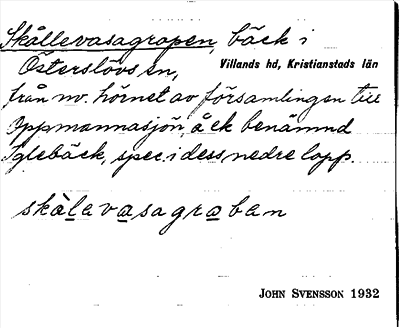 Skållevasagropen, bäck i
Österslövs sn, Villands hd, Kristianstads län
från nv. hörnet av församlingen till
Oppmannasjön, å ek benämnd
Iglebäck, spec. i dess nedre lopp.
skålavasagraban
JOHN SVENSSON 1932